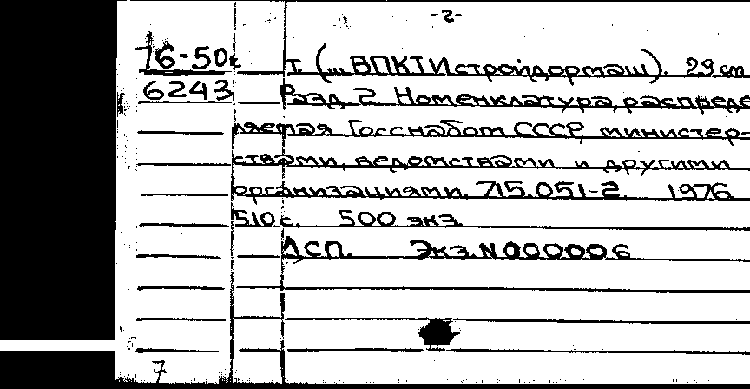 -2-
76-50г т. (... ВПКТИстройдормаш). 29 cm
6243 Разд. 2 Номенклатура, распреде
ляемая Госснабом СССР, министер-
ствами, ведомствами и другими
организациями. 715.051-2. 1976
510 с. 500 экз.
ДСП. Экз. N000006
7